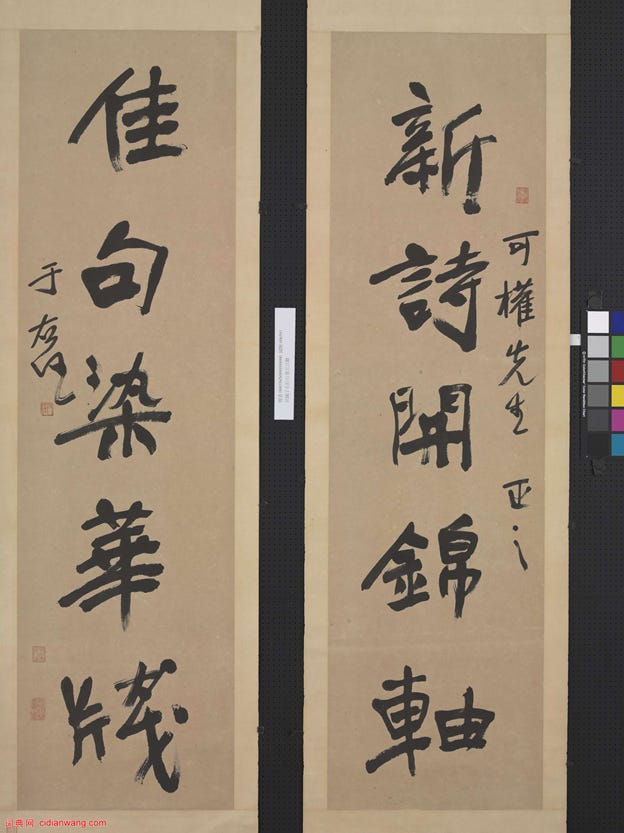 新詩開錦軸
可權先生 正之
佳句染華牋
于右任
词典网 cidianwang.com